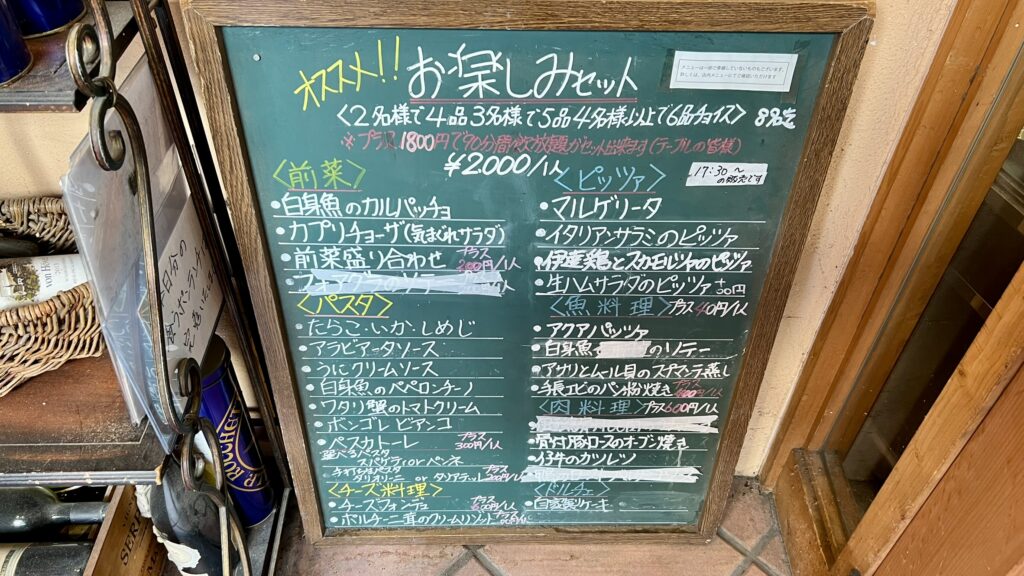 オススメ!!
お楽しみセット
メニューは一部で準備していないものもございます。
詳しくは、店内メニューにてご確認いただけます
<2名様で4品3名様で5品4名様以上で6品チョイス>
※プラス1800円で90分間飲放題がセット出来ます(テーブルの皆様)
¥2000/1人
<前菜>
・白身魚のカルパッチョ
・カプリチョーザ(気まぐれサラダ)
・前菜盛り合わせ プラス
円/1人
<パスタ>
・たらこ・いか・しめじ
・アラビアータソース
・うにクリームソース
・白身魚のペペロンチーノ
・ワタリ蟹のトマトクリーム
・ボンゴレビアンコ
・ペスカトーレ プラス300円/1人
選べるパスタ
スパゲティorペンネ
タリオリーニ or タリアテッレ
<チーズ料理>
・チーズフォンデュ プラス600円/1人
・ポルチーニ茸のクリームリゾット プラス
<ピッツァ>
17:30〜
の販売です
・マルゲリータ
・イタリアンサラミのピッツァ
・伊達鶏とスカモルツァのピッツァ
・生ハムサラダのピッツァ
<魚料理>プラス400円/1人
・アクアパッツァ
・白身魚 のソテー
・アサリとムール貝のスチマンラ蒸し
・手長エビのパン粉焼き プラス
<肉料理>プラス600円/1人
・骨付豚ロースのオーブン焼き
・仔牛のカツレツ
<ドルチェ>
・自家製ケーキ
本日分の